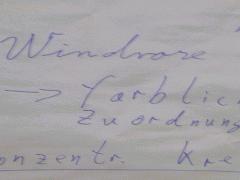 Windrose
→ farblic
zuordnung
onzentr. Kre